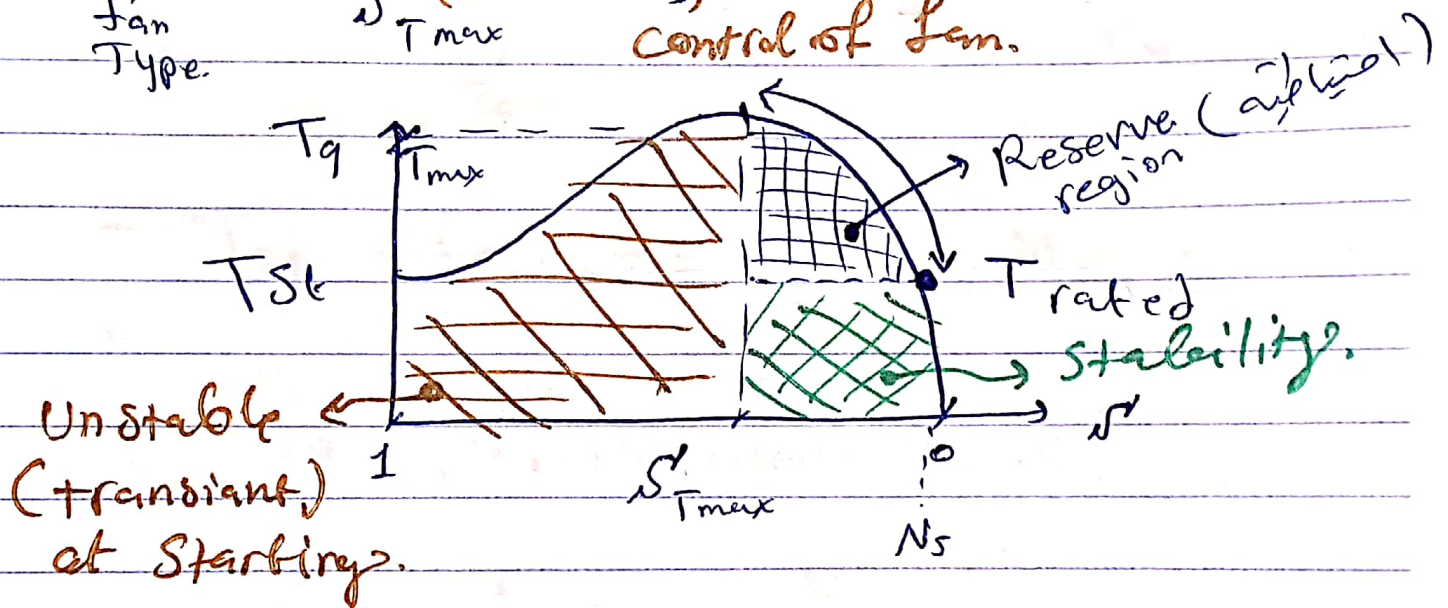 fan
Type.
S Tmax
Control of fan.
Tq
Tmax
Reserve (احتياطية)
region
TSt
T rated
Stability.
Unstable
(transiant)
at Starting.
1
S Tmax
0
S
Ns